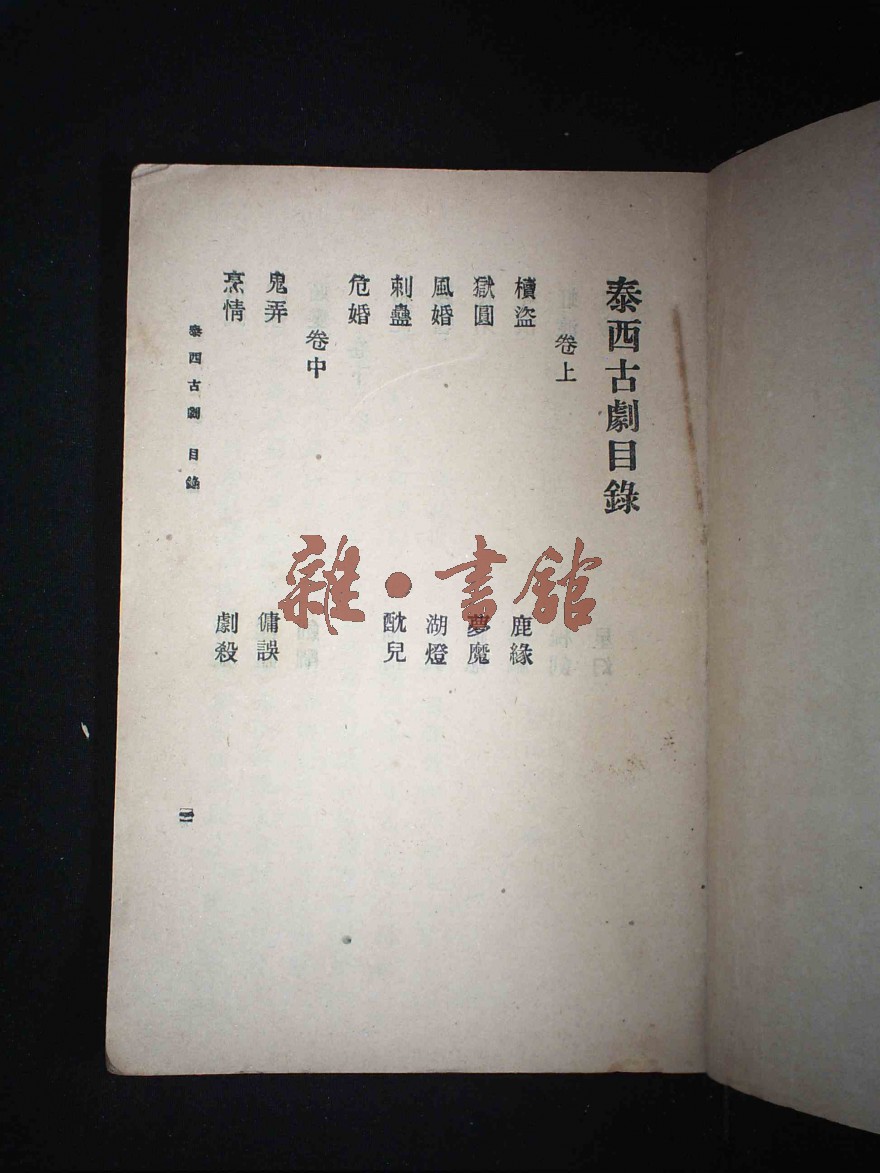 泰西古劇目錄
卷上
櫝盜
鹿緣
獄圓
夢魔
風婚
湖燈
刺蠱
酖兒
危婚
卷中
鬼弄
傭誤
烹情
劇殺
泰西古劇 目錄
雜·書館